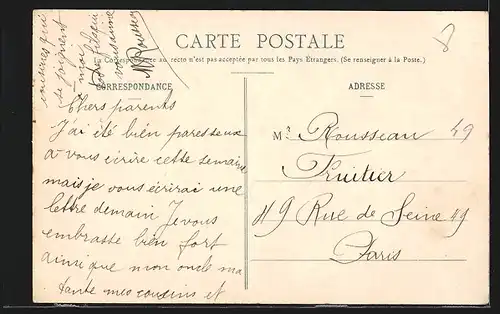 CARTE POSTALE
La Correspondance au recto n'est pas acceptée par tous les Pays Étrangers. (Se renseigner à la Poste.)
CORRESPONDANCE
ADRESSE
Chers parents
J'ai été bien paresseux
a vous écrire cette semaine
mais je vous écrirai une
lettre demain Je vous
embrasse bien fort
ainsi que mon oncle ma
tante mes cousins et
cousines qui
se
moi
Votre fils qui
vous aime
Rousseau
Mr Rousseau 49
Fruitier
49 Rue de Seine 49
Paris
8